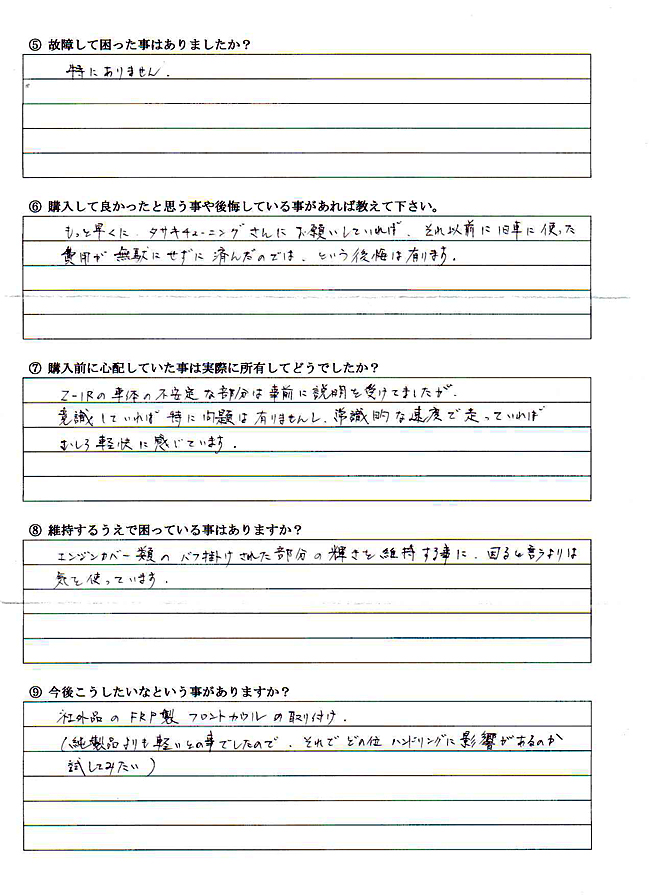 ⑤ 故障して困った事はありましたか？
特にありません.
⑥ 購入して良かったと思う事や後悔している事があれば教えて下さい。
もっと早くに、タサキチューニングさんにお願いしていれば、それ以前に旧車に使った
費用が無駄にせずに済んだのでは、という後悔は有ります.
⑦ 購入前に心配していた事は実際に所有してどうでしたか？
Z-1Rの車体の不安定な部分は事前に説明を受けてましたが、
意識していれば特に問題は有りませんし、常識的な速度で走っていれば
むしろ軽快に感じています.
⑧ 維持するうえで困っている事はありますか？
エンジンカバー類のバフ掛けされた部分の輝きを維持する事に、困ると言うよりは
気を使っています.
⑨ 今後こうしたいなという事がありますか？
社外品のFRP製フロントカウルの取付け.
(純製品よりも軽いとの事でしたので、それでどの位ハンドリングに影響があるのか
試してみたい)